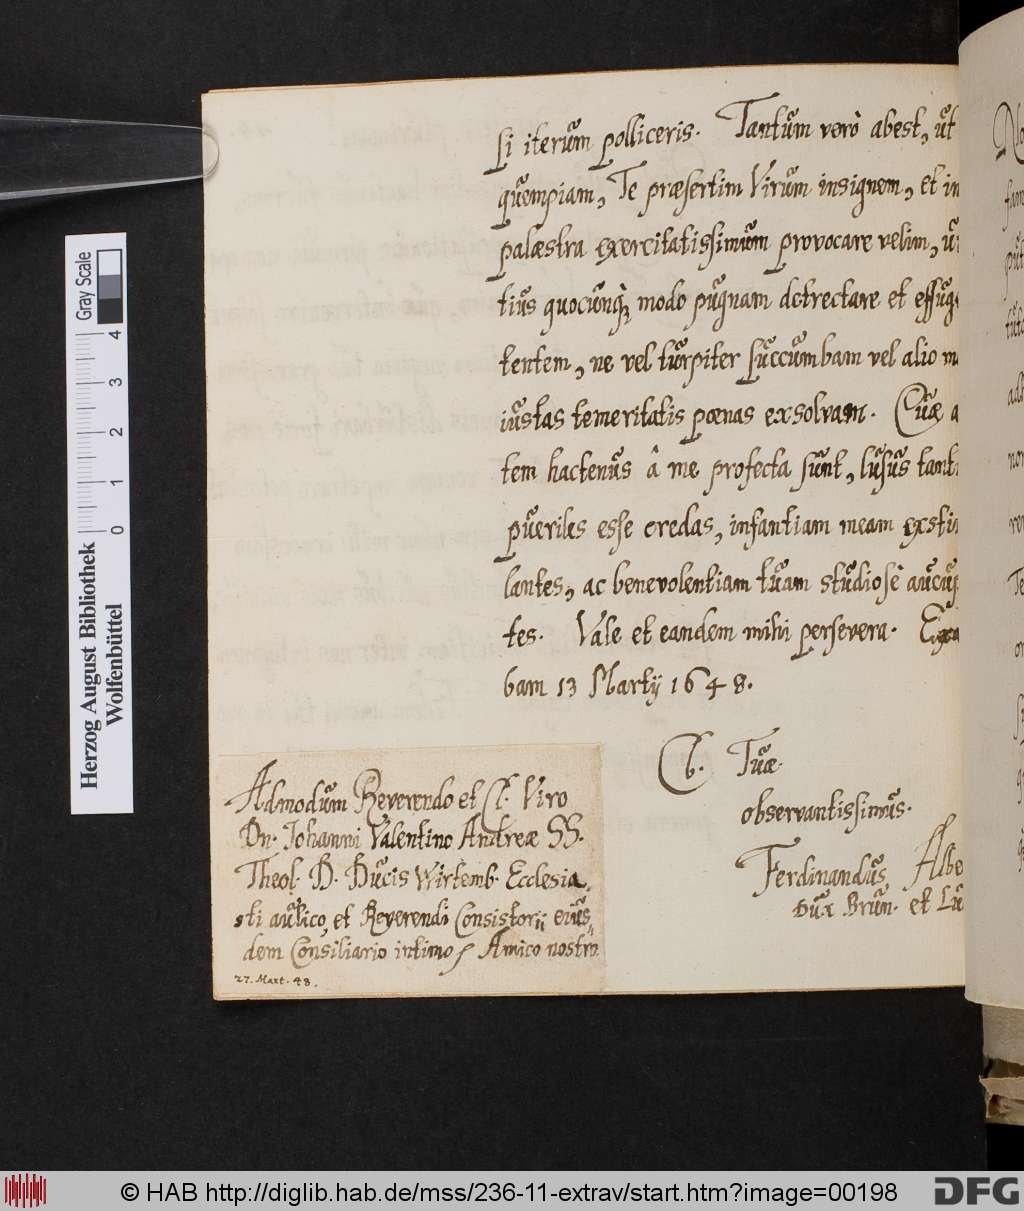 si iterum polliceris. Tantum verò abest, ut
quempiam, Te præsertim Virum insignem, et in
palæstra exercitatissimum provocare velim, u
tius quocunq; modo pugnam detrectare et effug
tentem, ne vel turpiter succumbam vel alio m
iustas temeritatis pœnas exsolvam. Cuæ a
tem hactenus â me profecta sunt, lusus tant
pueriles esse credas, infantiam meam exsti
lantes, ac benevolentiam tuam studiosè aucup
tes. Vale et eandem mihi persevera. Exa
bam 13 Martij 1648.
Cl. Tuæ
observantissimus.
Ferdinandus Albe
Dux Brun. et Lu
Admodum Reverendo et Cl. Viro
Dn. Johanni Valentino Andreæ SS.
Theol. D. Ducis Wirtemb. Ecclesia
sti aulico, et Reverendi Consistorij eius
dem Consiliario intimo, Amico nostro
27. Mart. 48.
Gray Scale
0 1 2 3 4
Herzog August Bibliothek
Wolfenbüttel
© HAB http://diglib.hab.de/mss/236-11-extrav/start.htm?image=00198
DFG